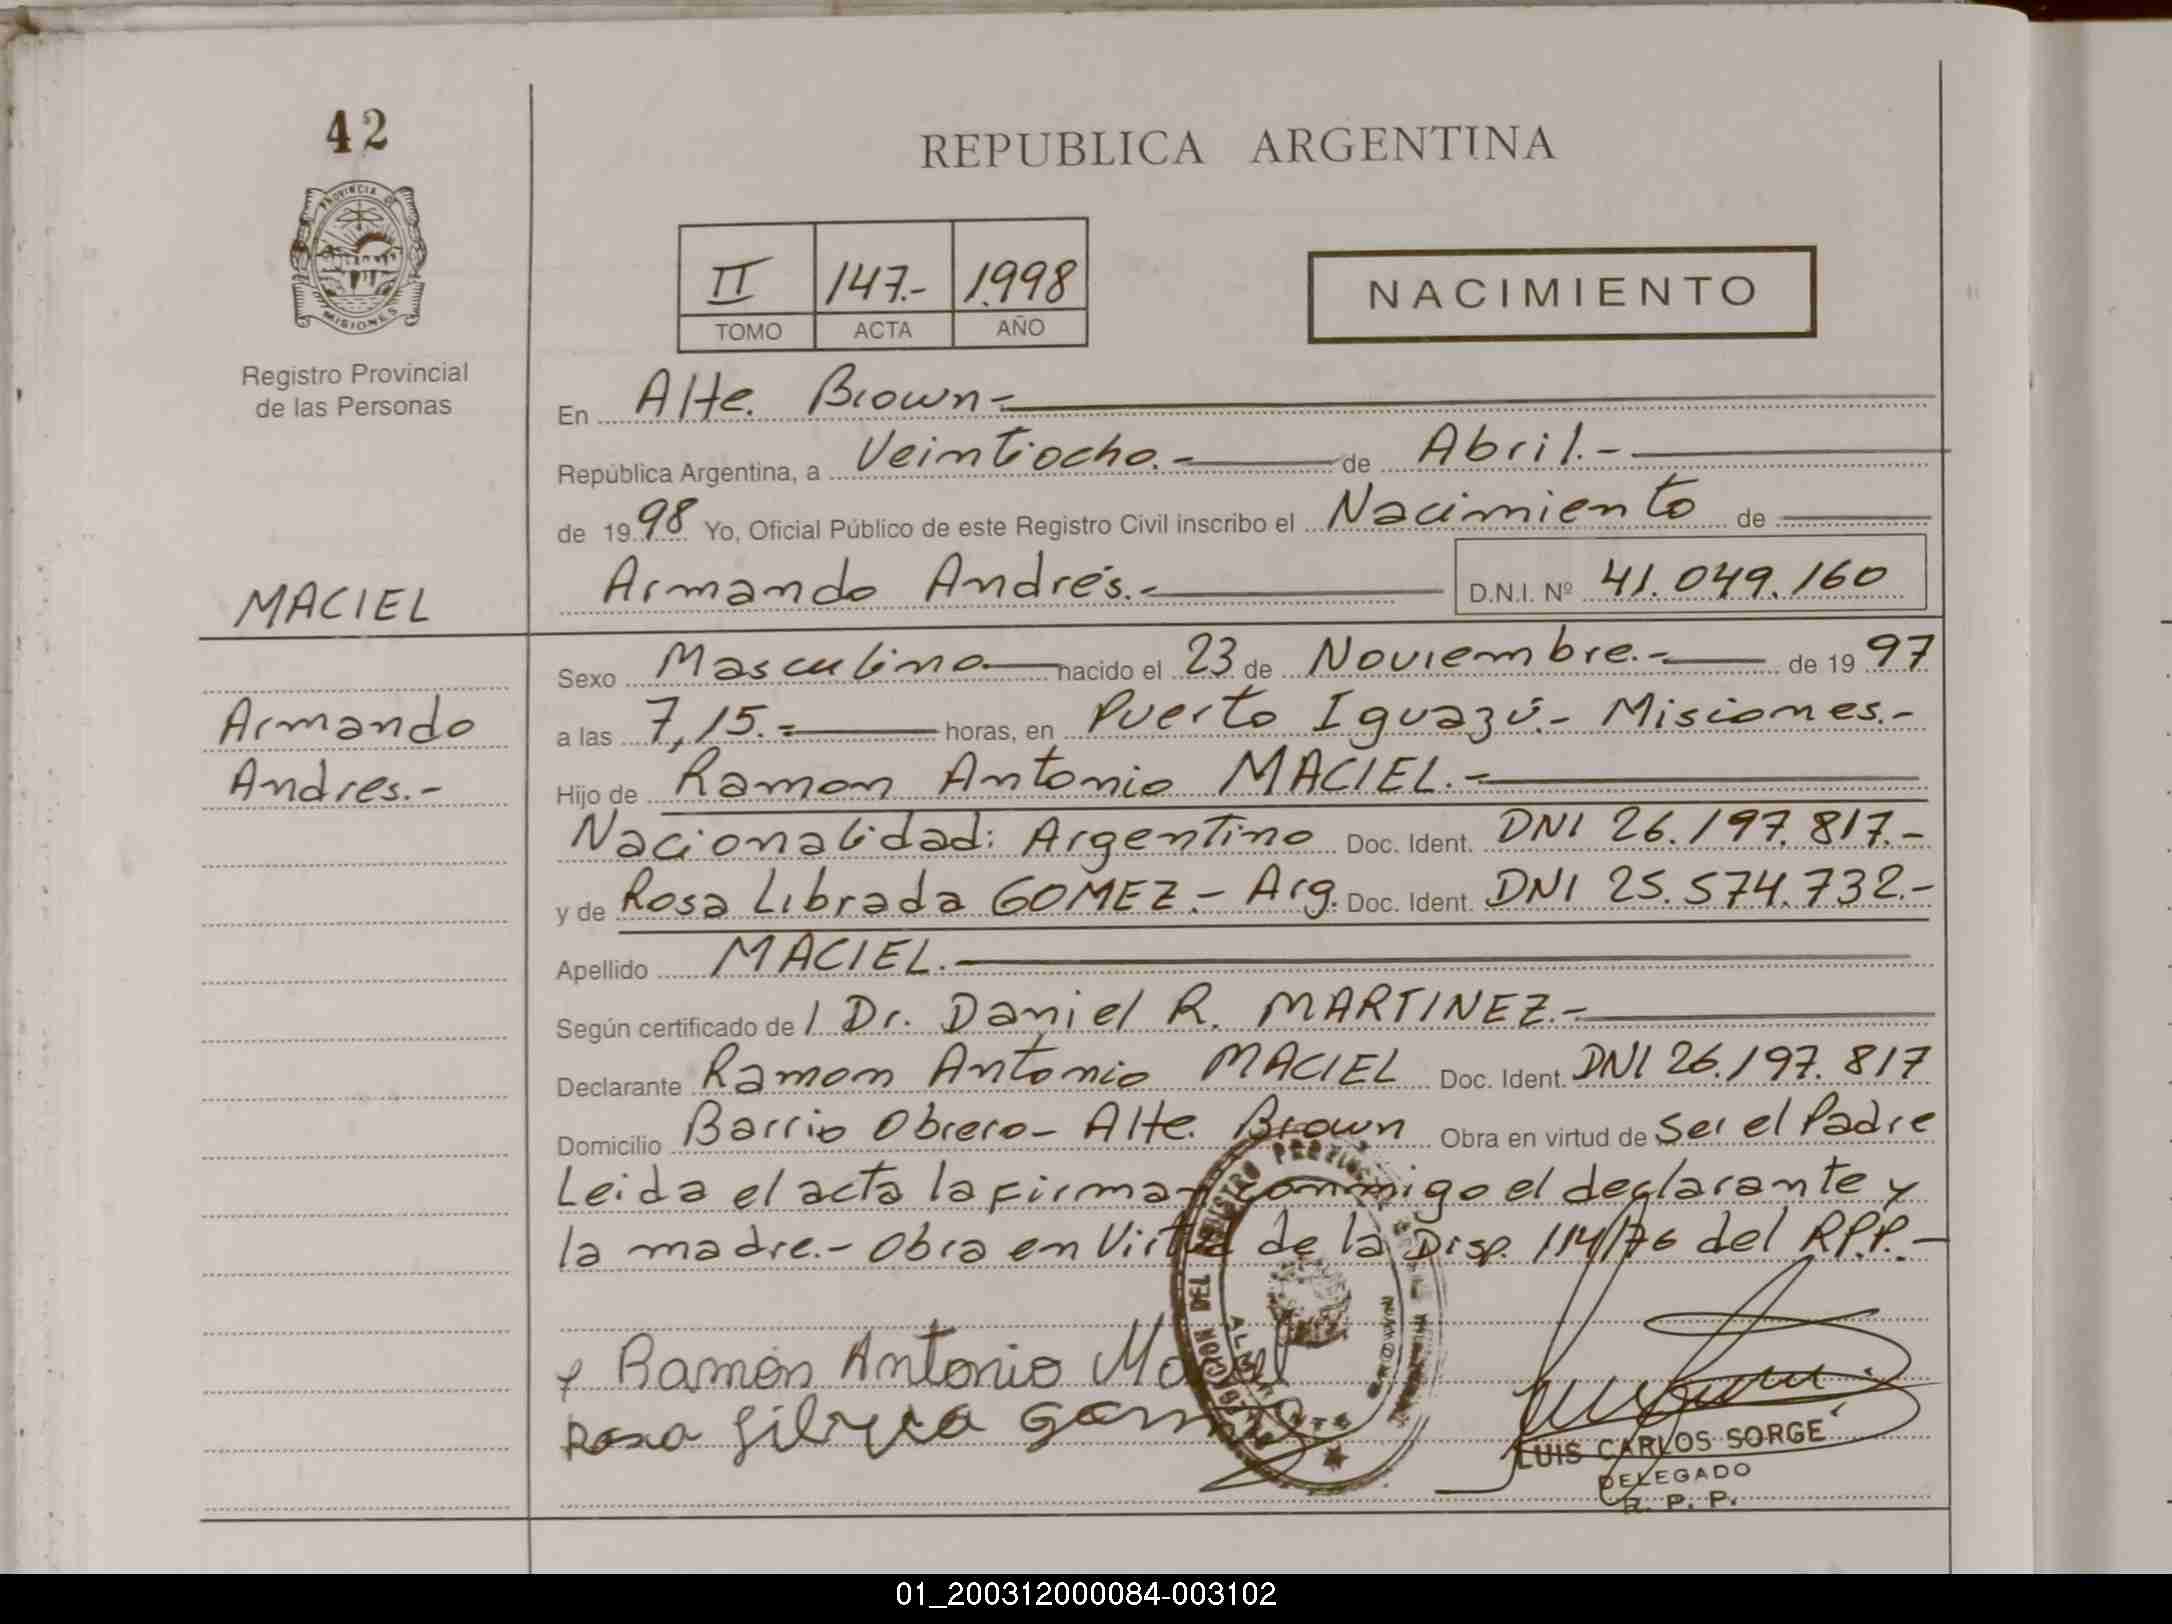 42
REPUBLICA ARGENTINA
PROVINCIA DE
MISIONES
II 147.- 1.998
TOMO ACTA AÑO
NACIMIENTO
Registro Provincial
de las Personas
En Alte. Brown.-
República Argentina, a Veintiocho.- de Abril.-
de 1998 Yo, Oficial Público de este Registro Civil inscribo el Nacimiento de
Armando Andrés.- D.N.I. Nº 41.049.160
MACIEL
Armando
Andres.-
Sexo Masculino nacido el 23 de Noviembre.- de 1997
a las 7,15.= horas, en Puerto Iguazú.- Misiones.-
Hijo de Ramon Antonio MACIEL.-
Nacionalidad: Argentino Doc. Ident. DNI 26.197.817.-
y de Rosa Librada GOMEZ.- Arg. Doc. Ident. DNI 25.574.732.-
Apellido MACIEL.-
Según certificado de / Dr. Daniel R. MARTINEZ.-
Declarante Ramon Antonio MACIEL Doc. Ident. DNI 26.197.817
Domicilio Barrio Obrero- Alte. Brown Obra en virtud de ser el Padre
Leida el acta la firman conmigo el declarante y
la madre.- Obra en Virtud de la Disp. 114/76 del R.P.P.-
Ramón Antonio Maciel
Rosa
LUIS CARLOS SORGE
DELEGADO
R. P. P.
01_200312000084-003102